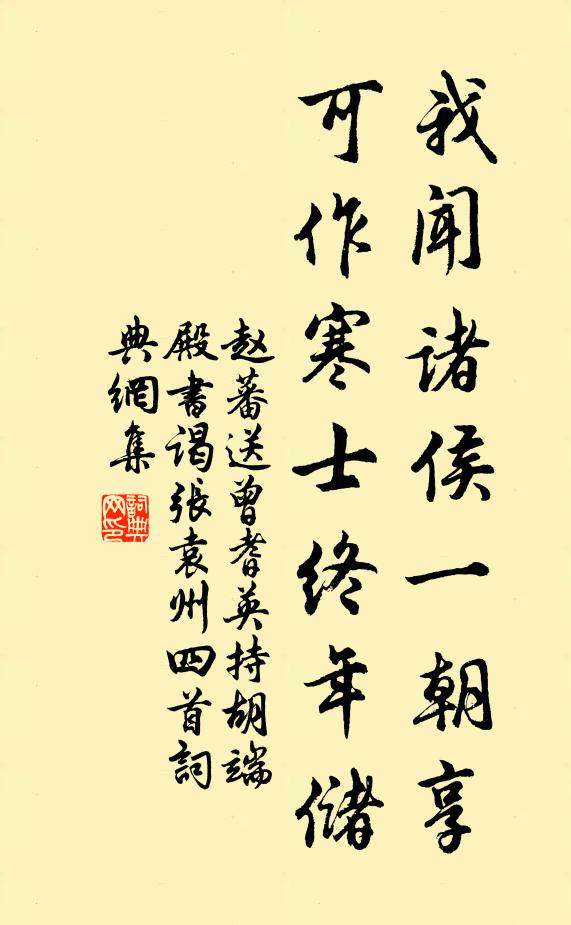 我闻诸侯一朝享
可作寒士终年储
赵蕃送曾耆英持胡端
殿书谒张袁州四首詞
典網集
詞典
网印